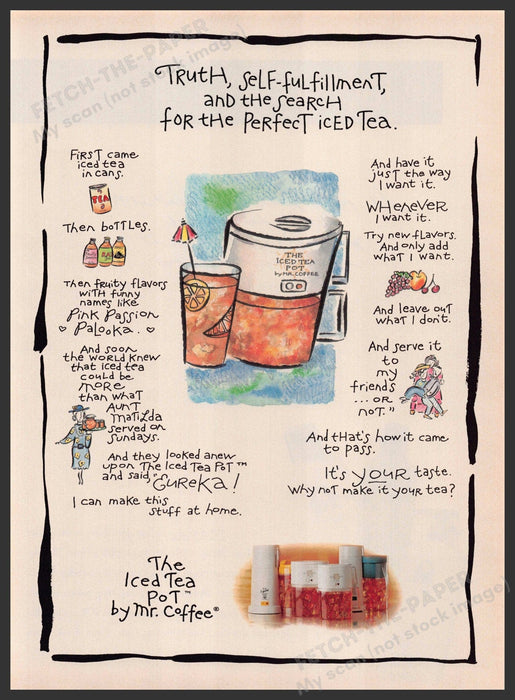 FETCH-THE-PAPER
My scan (not stock image)
Truth, self-fulfillment,
and the search
for the perfect iced tea.
First came
iced tea
in cans.
TEA
Then bottles.
Then fruity flavors
with funny
names like
Pink Passion
Palooka.
And soon
the world knew
that iced tea
could be
more
than what
Aunt
Matilda
served on
Sundays.
And they looked anew
upon The Iced Tea Pot™
and said, "Eureka!
I can make this
stuff at home.
THE
ICED TEA
POT
by MR. COFFEE
And have it
just the way
I want it.
Whenever
I want it.
Try new flavors.
And only add
what I want.
And leave out
what I don't.
And serve it
to
my
friends
... or
not."
And that's how it came
to pass.
It's your taste.
Why not make it your tea?
The
Iced Tea
Pot™
by Mr. Coffee®
FETCH-THE-PAPER
My scan (not stock image)